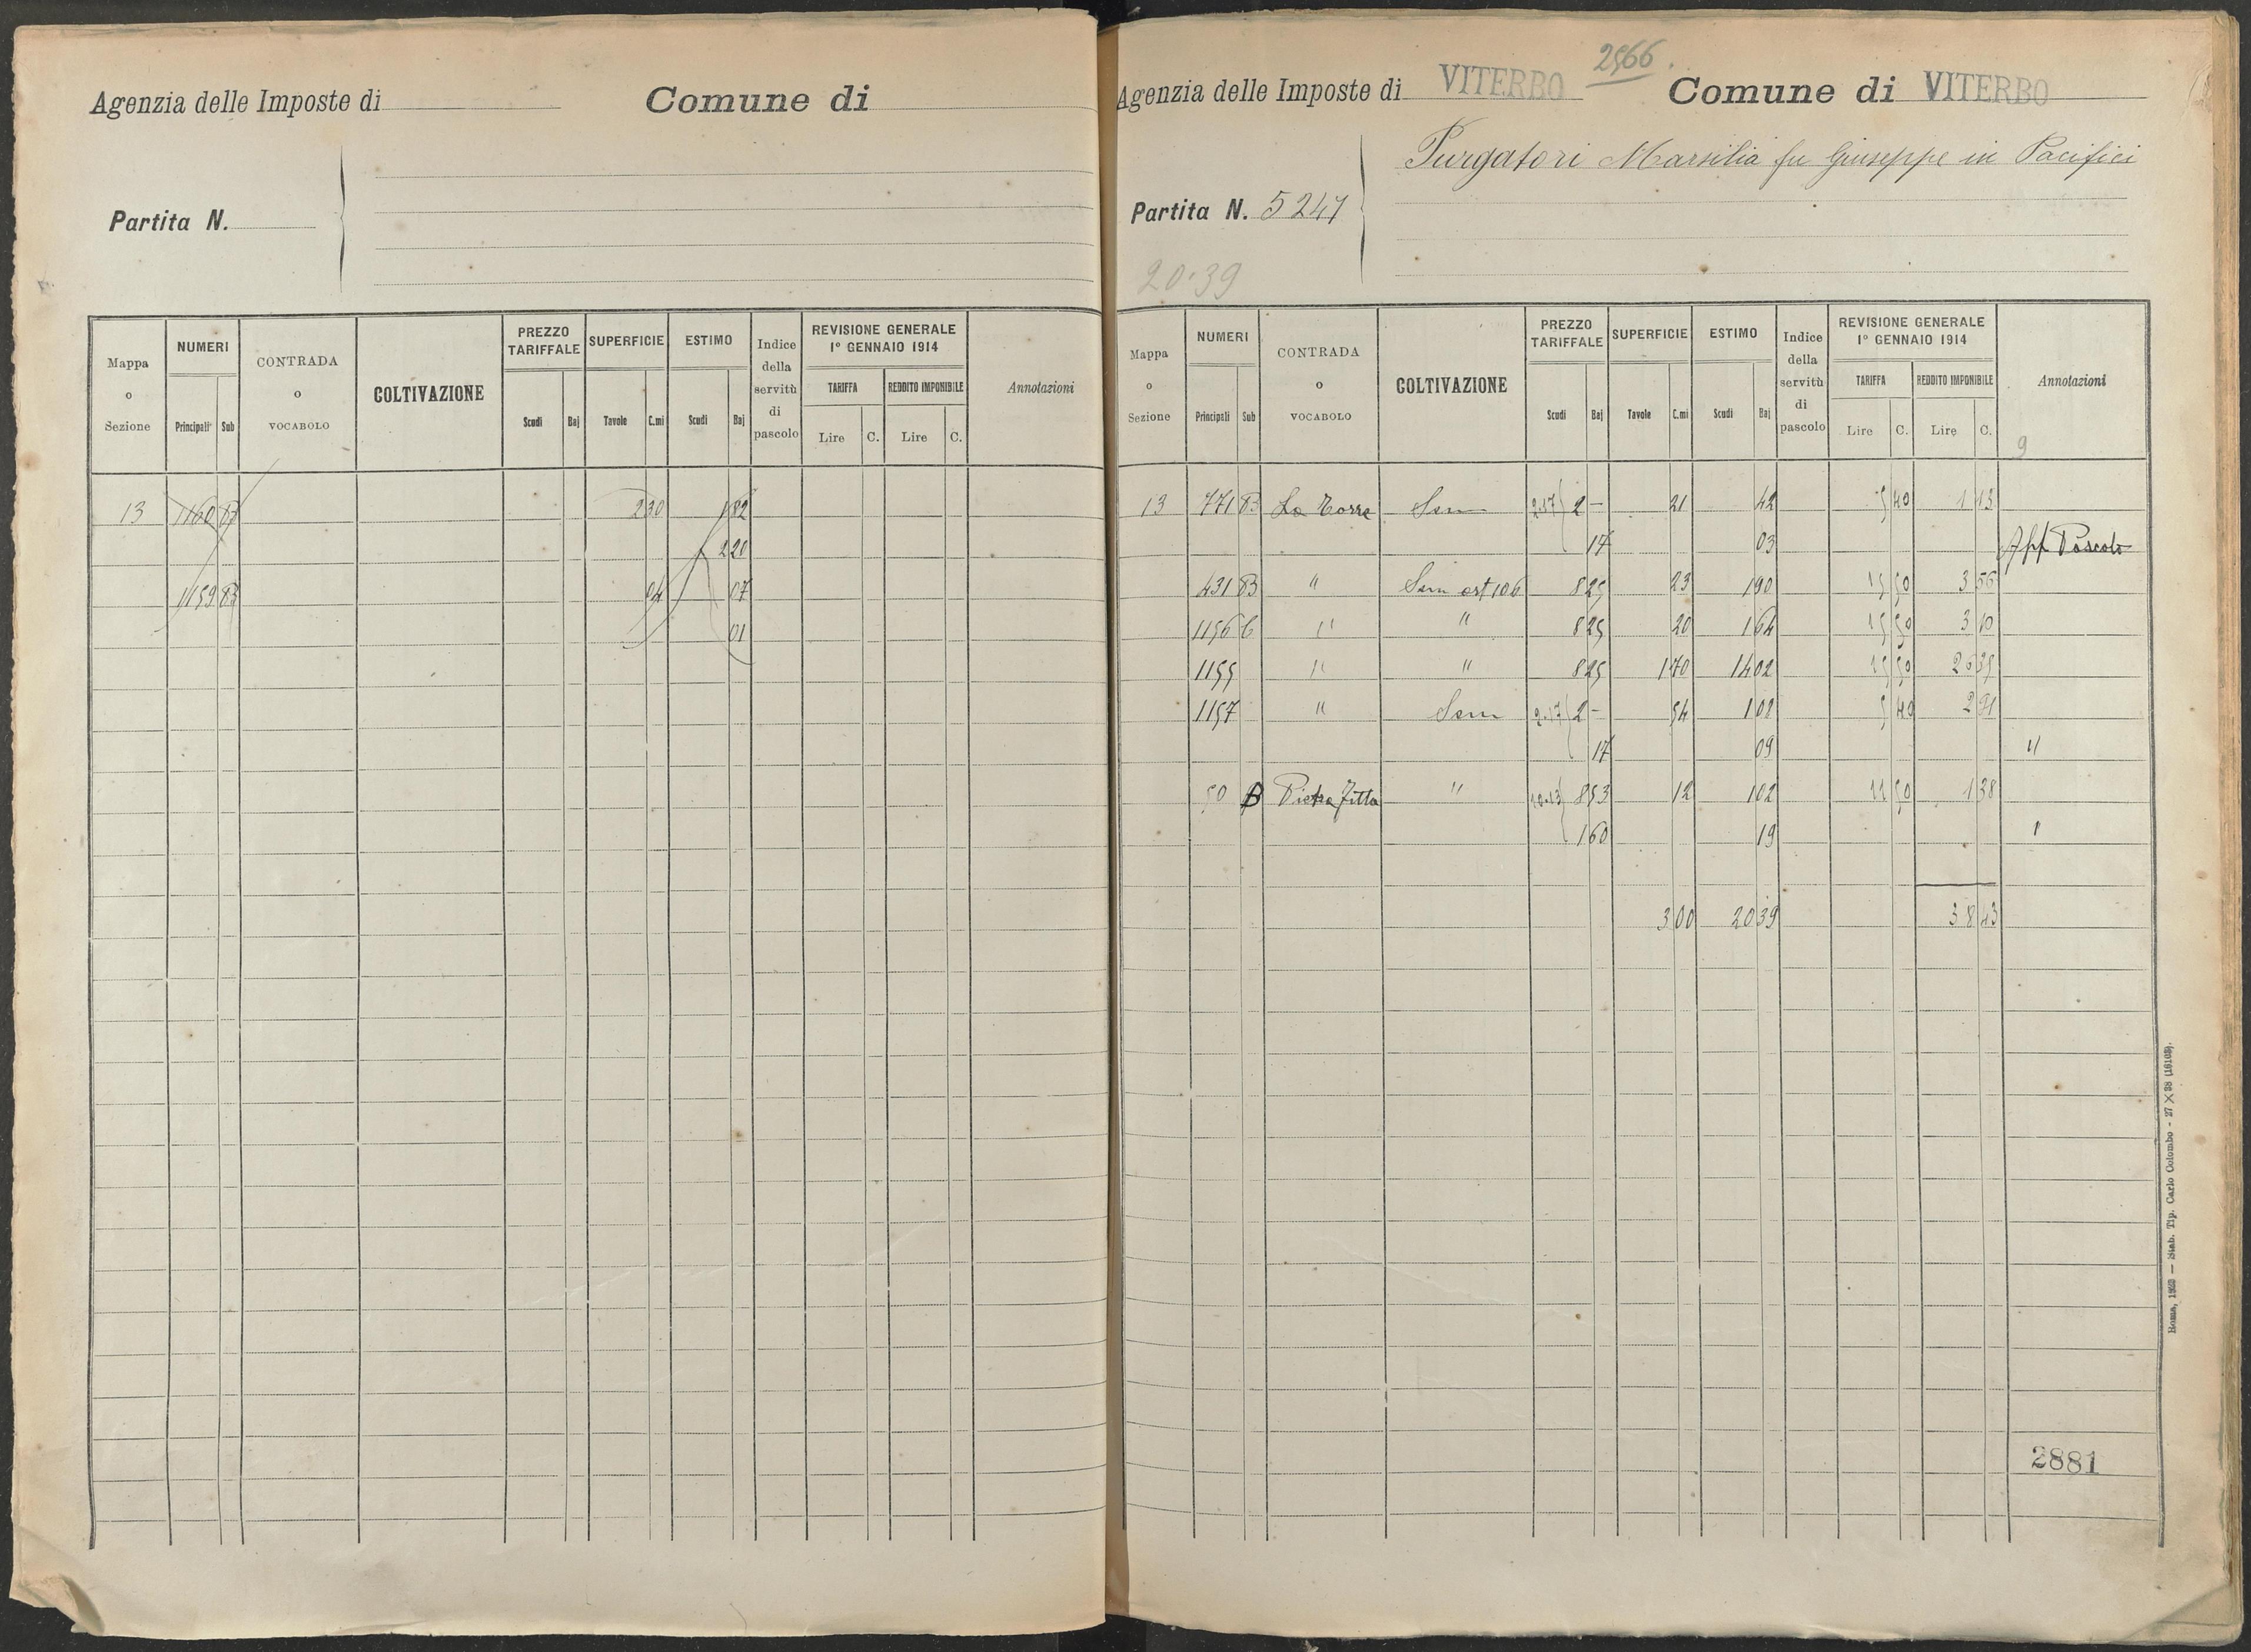 Agenzia delle Imposte di Comune di
Partita N.
Mappa o Sezione NUMERI Principali Sub CONTRADA o VOCABOLO COLTIVAZIONE PREZZO TARIFFALE Scudi Baj SUPERFICIE Tavole C.mi ESTIMO Scudi Baj Indice della servitù di pascolo REVISIONE GENERALE 1º GENNAIO 1914 TARIFFA Lire C. REDDITO IMPONIBILE Lire C. Annotazioni
13 1160 B 2 30 1 82
2 20
1159 B 04 07
01
2566
Agenzia delle Imposte di VITERBO Comune di VITERBO
Purgatori Marsilia fu Giuseppe in Pacifici
Partita N. 5247
20.39
Mappa o Sezione NUMERI Principali Sub CONTRADA o VOCABOLO COLTIVAZIONE PREZZO TARIFFALE Scudi Baj SUPERFICIE Tavole C.mi ESTIMO Scudi Baj Indice della servitù di pascolo REVISIONE GENERALE 1º GENNAIO 1914 TARIFFA Lire C. REDDITO IMPONIBILE Lire C. Annotazioni
9
13 771 B La Torre Sem 2.17 2 - 21 42 5 40 1 13
17 03 App Pascolo
431 B " Sem ort 106 8 25 23 1 90 15 50 3 56
1156 C " " 8 25 20 1 64 15 50 3 10
1155 " " 8 25 1 70 14 02 15 50 26 35
1157 " Sem 2.17 2 - 54 1 08 5 40 2 91
17 09 "
50 B Pietra fitta " 10.13 8 53 12 1 02 11 50 1 38
1 60 19 "
3 00 20 39 38 43
2881
Roma, 1920 — Stab. Tip. Carlo Colombo - 27 X 38 (16103).